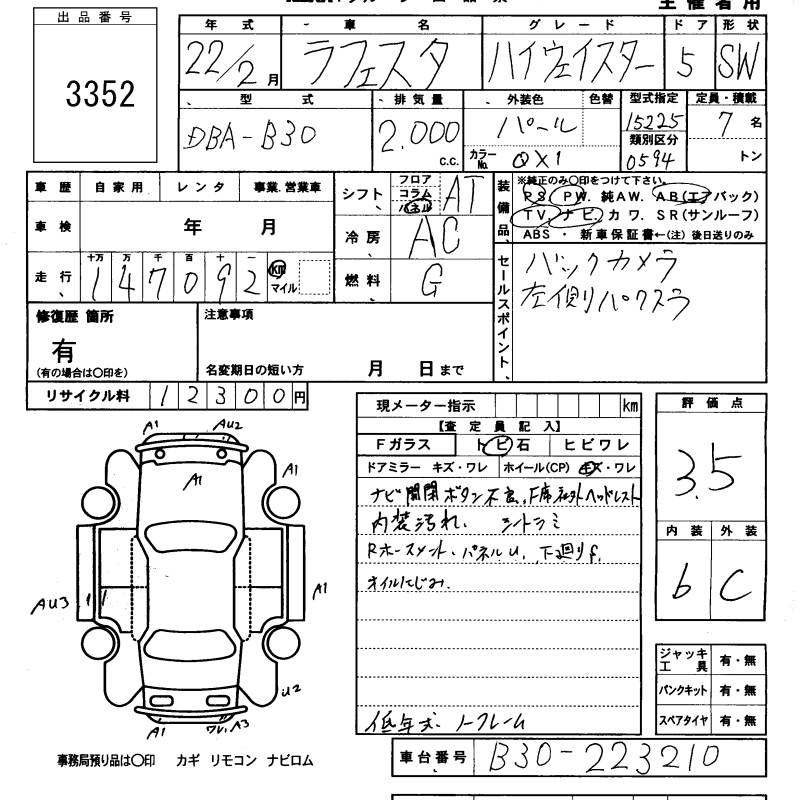 主催者用
出品番号
3352
年式 車名 グレード ドア 形状
22/2月 ラフェスタ ハイウェイスター 5 SW
型式 排気量 外装色 色替 型式指定 定員・積載
DBA-B30 2.000 c.c. パール 15225 7名
カラーNo. QX1 類別区分 0594 トン
車歴 自家用 レンタ 事業.営業車
シフト フロア コラム パネル AT
装備品、 ※純正のみ○印をつけて下さい。
PS. PW. 純AW. AB(エアバック)
TV. ナビ. カワ. SR(サンルーフ)
ABS ・ 新車保証書←(注) 後日送りのみ
車検 年 月
冷房 AC
走行、 十万 万 千 百 十 一
147092 km マイル
燃料、 G
セールスポイント、
バックカメラ
左側リパワスラ
修復歴 箇所
有
(有の場合は○印を)
注意事項
名変期日の短い方 月 日まで
リサイクル料 12300円
現メーター指示 km
【査定員記入】
Fガラス トビ石 ヒビワレ
ドアミラー キズ・ワレ ホイール(CP) キズ・ワレ
ナビ開閉ボタン不良、F席社外ヘッドレスト
内装汚れ、 シトラミ
Rホースメント、パネルU、下廻りf.
オイルにじみ.
低年式 ノーフレーム
評価点
3.5
内装 外装
b C
ジャッキ工具 有・無
パンクキット 有・無
スペアタイヤ 有・無
A1 AU2
A1 A1
AU3 A1
U2
A1 ワレ、A3
事務局預り品は○印 カギ リモコン ナビロム
車台番号、 B30-223210